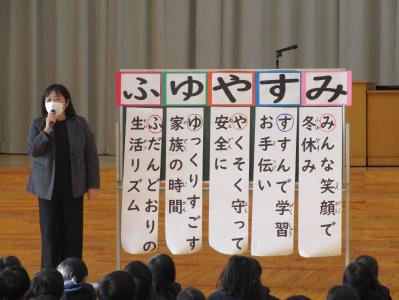 ふゆやすみ
ふだんどおりの
生活リズム
ゆっくりすごす
家族の時間
やくそく守って
安全に
すすんで学習
お手伝い
みんな笑顔で
冬休み